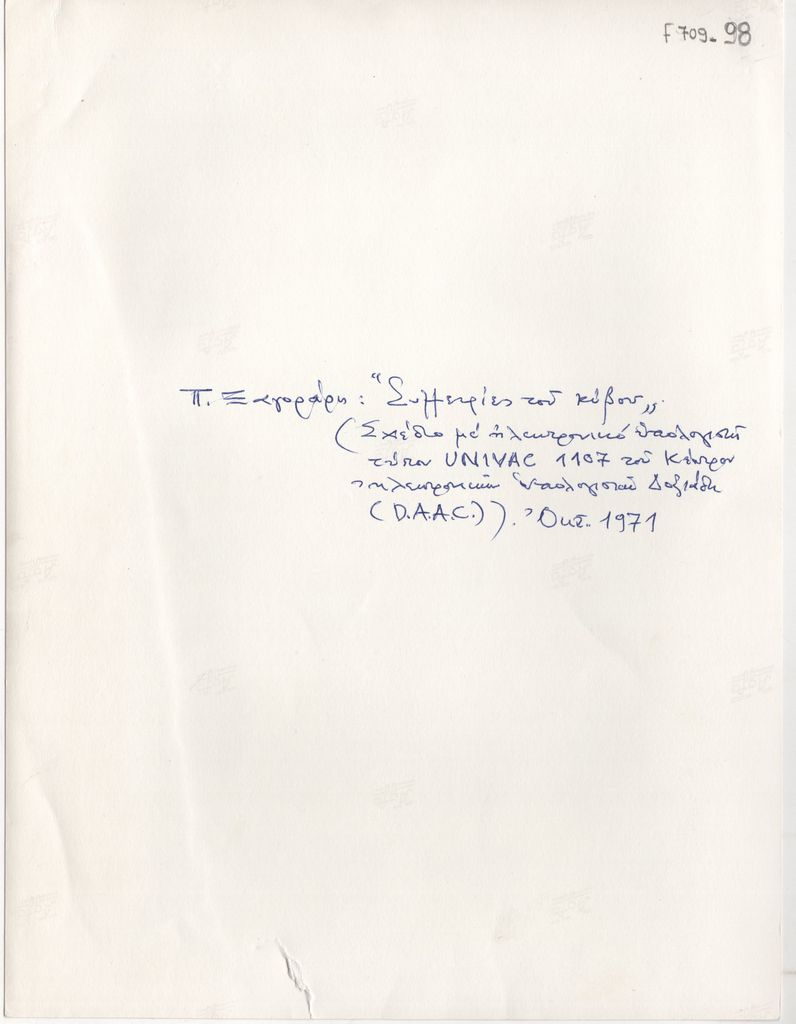 F 709-98
Π. Ξαγοράρη: "Συμμετρίες τοῦ κύβου„.
(Σχέδιο μέ ἠλεκτρονικό ὑπολογιστή
τύπου UNIVAC 1107 τοῦ Κέντρου
ἠλεκτρονικῶν ὑπολογιστῶν Δοξιάδη
(D.A.A.C.)). Ὀκτ. 1971